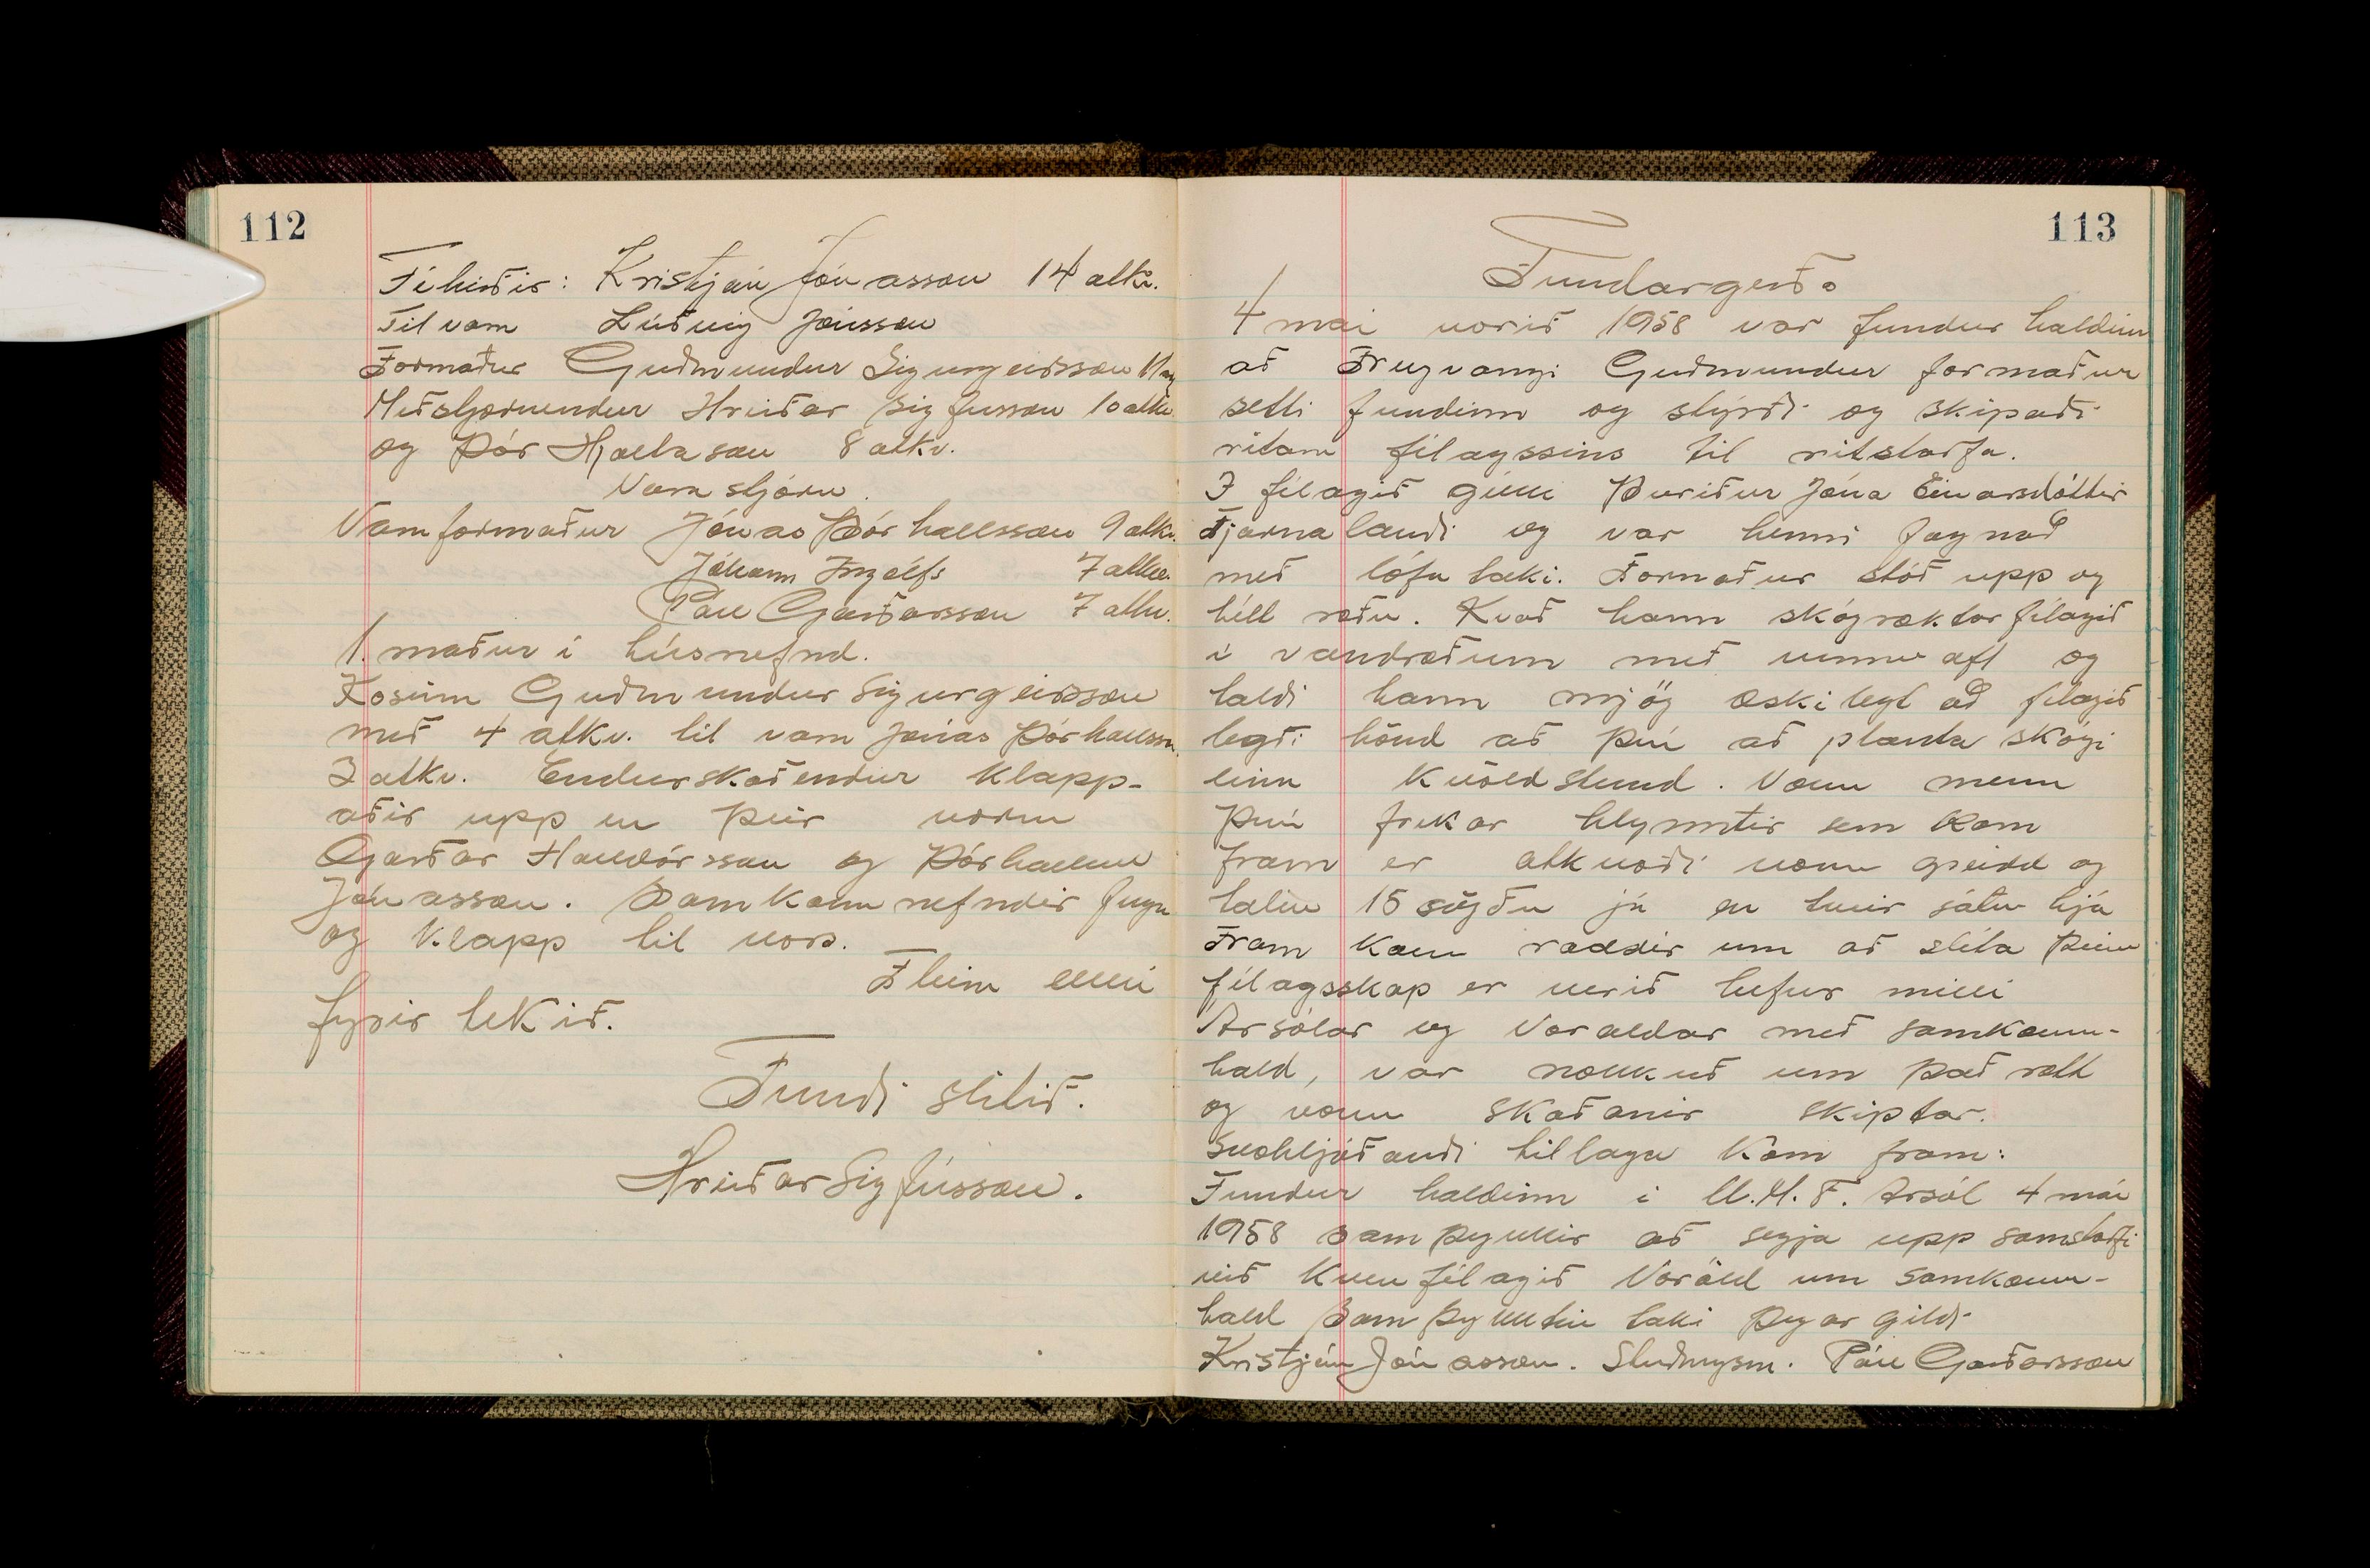 112
Féhirðir: Kristján Jónasson 14 atkv.
Til vara Lúðvig Jónsson
Formaður Guðmundur Sigurgeirsson 11 atkv
Meðstjórnendur Hreiðar Sigfússon 10 atkv.
og Þór Hjaltason 8 atkv.
Varastjórn.
Varaformaður Jónas Þórhallsson 9 atkv.
Jóhann Ingólfs 7 atkv.
Páll Garðarsson 7 atkv.
1. maður í húsnefnd.
Kosinn Guðmundur Sigurgeirsson
með 4 atkv. til vara Jónas Þórhallsson
3 atkv. Endurskoðendur klapp-
aðir upp en þeir voru
Garðar Halldórsson og Þórhallur
Jónasson. Samkomunefndir fuyu
og klapp til vors.
Fleira ekki
fyrir tekið.
Fundi slitið.
Hreiðar Sigfússon.
113
Fundargerð.
4 mai vorið 1958 var fundur haldinn
að Freyvangi Guðmundur formaður
setti fundinn og stýrði og skipaði
ritara félagssins til ritstarfa.
I félagið gekk Þuriður Jóna Einarsdóttir
Tjarnalandi og var henni fagnað
með lófataki. Formaður stóð upp og
hélt ræðu. Kvað hann skógræktarfélagið
i vandræðum með vinnuafl og
taldi hann mjög æskilegt að félagið
legði hönd að því að planta skógi
einn kvöldstund. Voru menn
því frekar hlynntir sem kom
fram er atkvæði voru greidd og
talin 15 sögðu já en tveir sátu hjá
Fram komu raddir um að slíta þeim
félagsskap er verið hefur milli
Arsólar og Voraldar með samkomu-
hald, var nokkuð um það rætt
og voru skoðanir skiptar.
Svohljóðandi tillaga kom fram:
Fundur haldinn i U.M.F. Arsól 4 mái
1958 samþykkir að segja upp samstarfi
við kvenfélagið Voröld um samkomu-
hald Samþykktin taki þegar gildi
Kristján Jónasson. Stuðnigsm. Páll Garðarsson